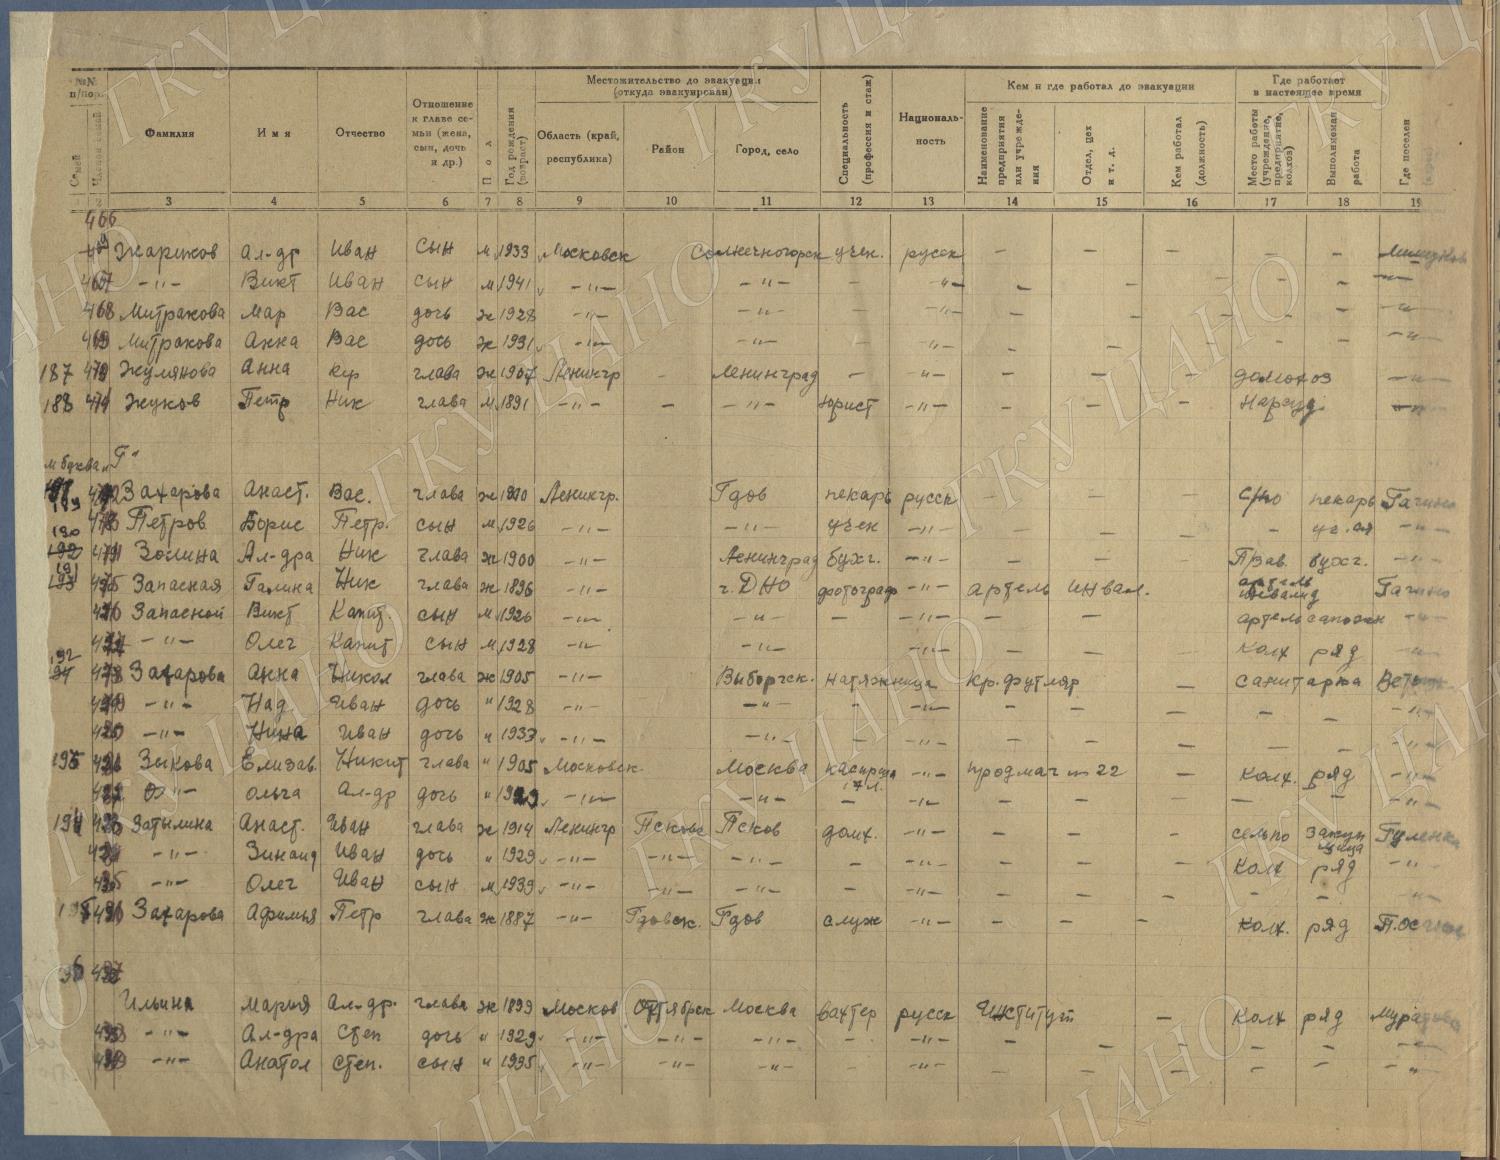 №№ п/пор. Фамилия Имя Отчество Отношение к главе семьи (жена, сын, дочь и др.) Пол Год рождения (возраст) Местожительство до эвакуации (откуда эвакуирован) Область (край, республика) Район Город, село Специальность (профессия и стаж) Националь-ность Кем и где работал до эвакуации Наименование предприятия или учрежде-ния Отдел, цех и т. д. Кем работал (должность) Где работает в настоящее время Место работы (учреждение, предприятие, колхоз) Выполняемая работа Где поселен
Семей
2 3 4 5 6 7 8 9 10 11 12 13 14 15 16 17 18 19
466
Жариков Ал-др Иван сын м 1933 Московск Солнечногорск учен. русск — — — — —
467 —"— Викт Иван сын м 1941 —"— —"— — —"— — — — — — —"—
468 Митракова Мар Вас дочь ж 1928 —"— —"— — —"— — — — — — —"—
469 Митракова Анна Вас дочь ж 1931 —"— —"— — —"— — — — — — —"—
187 470 Жумянова Анна глава ж 1907 Ленингр — Ленинград — —"— — — — домохоз —"—
188 471 Жуков Петр Ник глава м 1891 —"— — —"— юрист —"— — — — Нарсуд —"—
буква "Г"
189 472 Захарова Анаст. Вас. глава ж 1910 Ленингр. Гдов пекарь русск — — — пекарь Гагино
473 Петров Борис Петр. сын м 1926 —"— —"— учен —"— — — — — —"—
190 474 Зомина Ал-дра Ник глава ж 1900 —"— Ленинград бухг. —"— — — — Прав. бухг. —"—
191 475 Запасная Галина Ник глава ж 1896 —"— г. ДНО фотограф —"— артель инвал. артель инвалид Гагино
476 Запасной Викт Капит. сын м 1926 —"— —"— — —"— — — — артель сапожн —"—
477 —"— Олег Капит сын м 1928 —"— —"— — —"— — — — колх ряд —"—
192 478 Захарова Анна Никол глава ж 1905 —"— Выборгск. натяжница кр. футляр — санитарка
479 —"— Над Иван дочь " 1928 —"— —"— — —"— — — — — — —"—
480 —"— Нина Иван дочь " 1933 —"— —"— — —"— — — — — — —"—
193 481 Зыкова Елизав. Никит глава " 1905 Московск. Москва кассирша 17 л. —"— продмаг № 22 — колх. ряд —"—
482 —"— Ольга Ал-др дочь " 1929 —"— —"— — —"— — — — — — —"—
194 483 Затылина Анаст. Иван глава ж 1914 Ленингр Псковс Псков домх. —"— — — — сельпо
484 —"— Зинаид Иван дочь " 1929 —"— —"— —"— — —"— — — — колх ряд —"—
485 —"— Олег Иван сын м 1939 —"— —"— —"— — —"— — — — — — —"—
195 486 Захарова Афимья Петр глава ж 1887 —"— Гдовск. Гдов служ —"— — — — колх. ряд
196 487
Ильина Мария Ал-др. глава ж 1899 Москов Октябрск Москва вахтер русск Институт — колх ряд
488 —"— Ал-дра Степ дочь " 1929 —"— —"— —"— — —"— — — — — — —"—
489 —"— Анатол Степ. сын " 1935 —"— —"— —"— — —"— — — — — — —"—
ГКУ ЦАНО